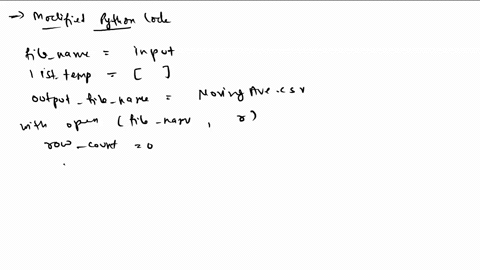 → Modified Python Code
file_name = input
list_temp = [ ]
output_file_name = Moving Ave.csv
with open (file_name, r)
row_count = 0